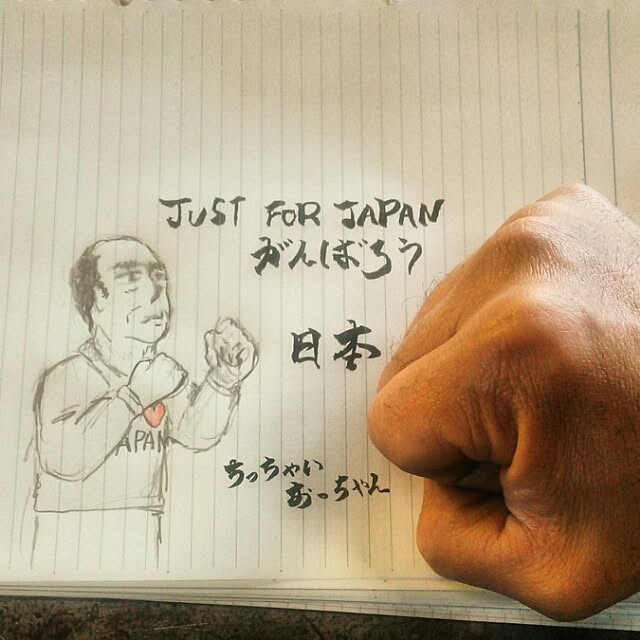 JUST FOR JAPAN
がんばろう
日本
APAN
ちっちゃい
おっちゃん